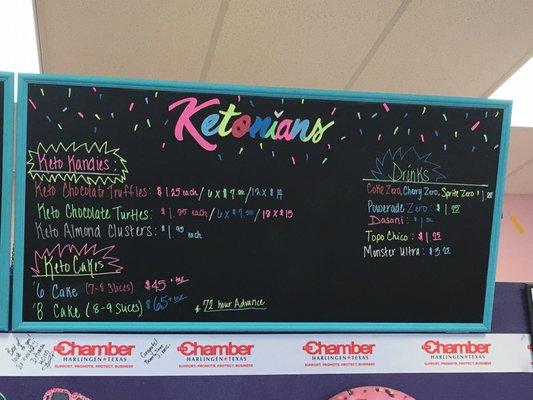 Ketonians
Keto Kandies:
Keto Chocolate Truffles: $1.25 each / 6 x $7.00 / 12 x $14
Keto Chocolate Turtles: $1.95 each / 6 x $7.50 / 12 x $15
Keto Almond Clusters: $1.95 each
Keto Cakes
6 Cake (7-8 slices) $45 + tax
8 Cake (8-9 slices) $65 + tax
* 72 hour Advance
Drinks
Coke Zero, Cherry Zero, Sprite Zero
Powerade Zero: $1.95
Dasani:
Topo Chico: $1.95
Monster Ultra: $3.95
Chamber
HARLINGEN TEXAS
SUPPORT, PROMOTE, PROTECT, BUSINESS
Chamber
HARLINGEN TEXAS
SUPPORT, PROMOTE, PROTECT, BUSINESS
Chamber
HARLINGEN TEXAS
SUPPORT, PROMOTE, PROTECT, BUSINESS
Chamber
HARLINGEN TEXAS
SUPPORT, PROMOTE, PROTECT, BUSINESS